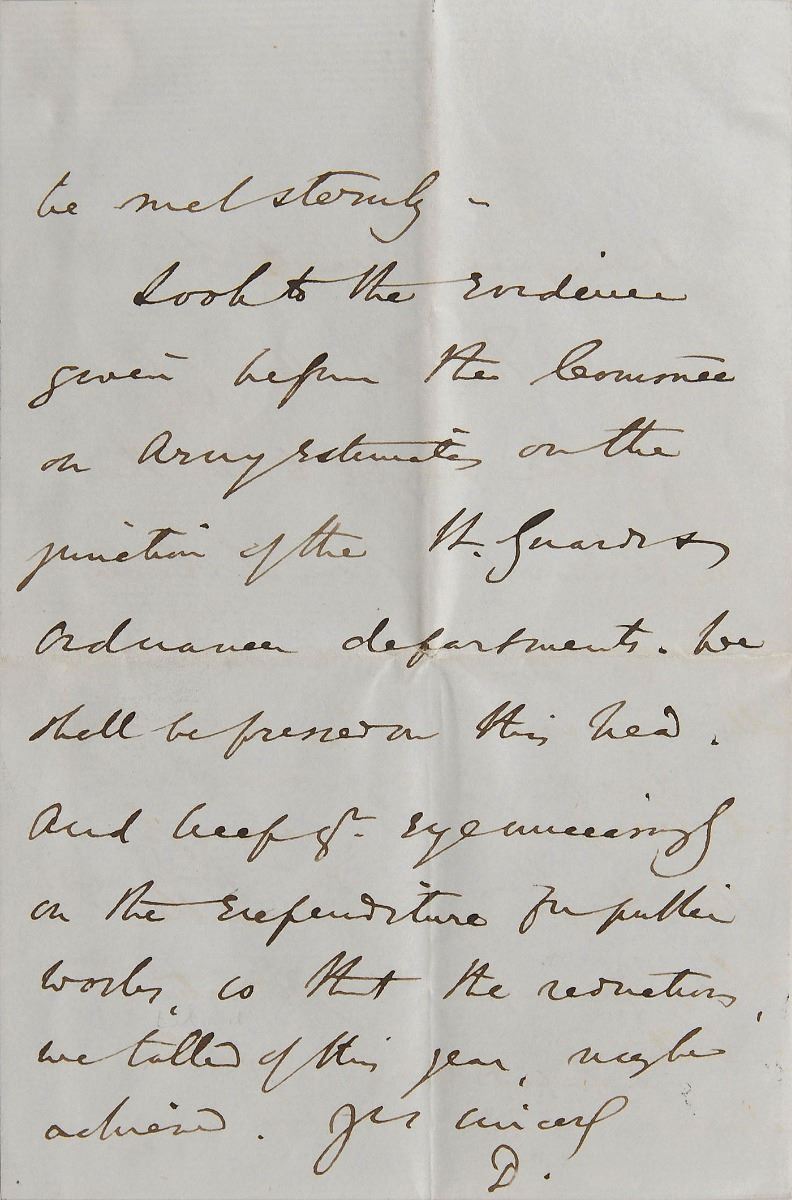 be met sternly –
Look to the Evidence
given before the Committee
on Army Estimates on the
junction of the H. Guards &
Ordnance departments. We
shall be pressed on this head.
And keep yr. Eye unceasingly
on the Expenditure for public
works, so that the reductions,
we talked of this year, may be
achieved. Yrs sincerely
D.